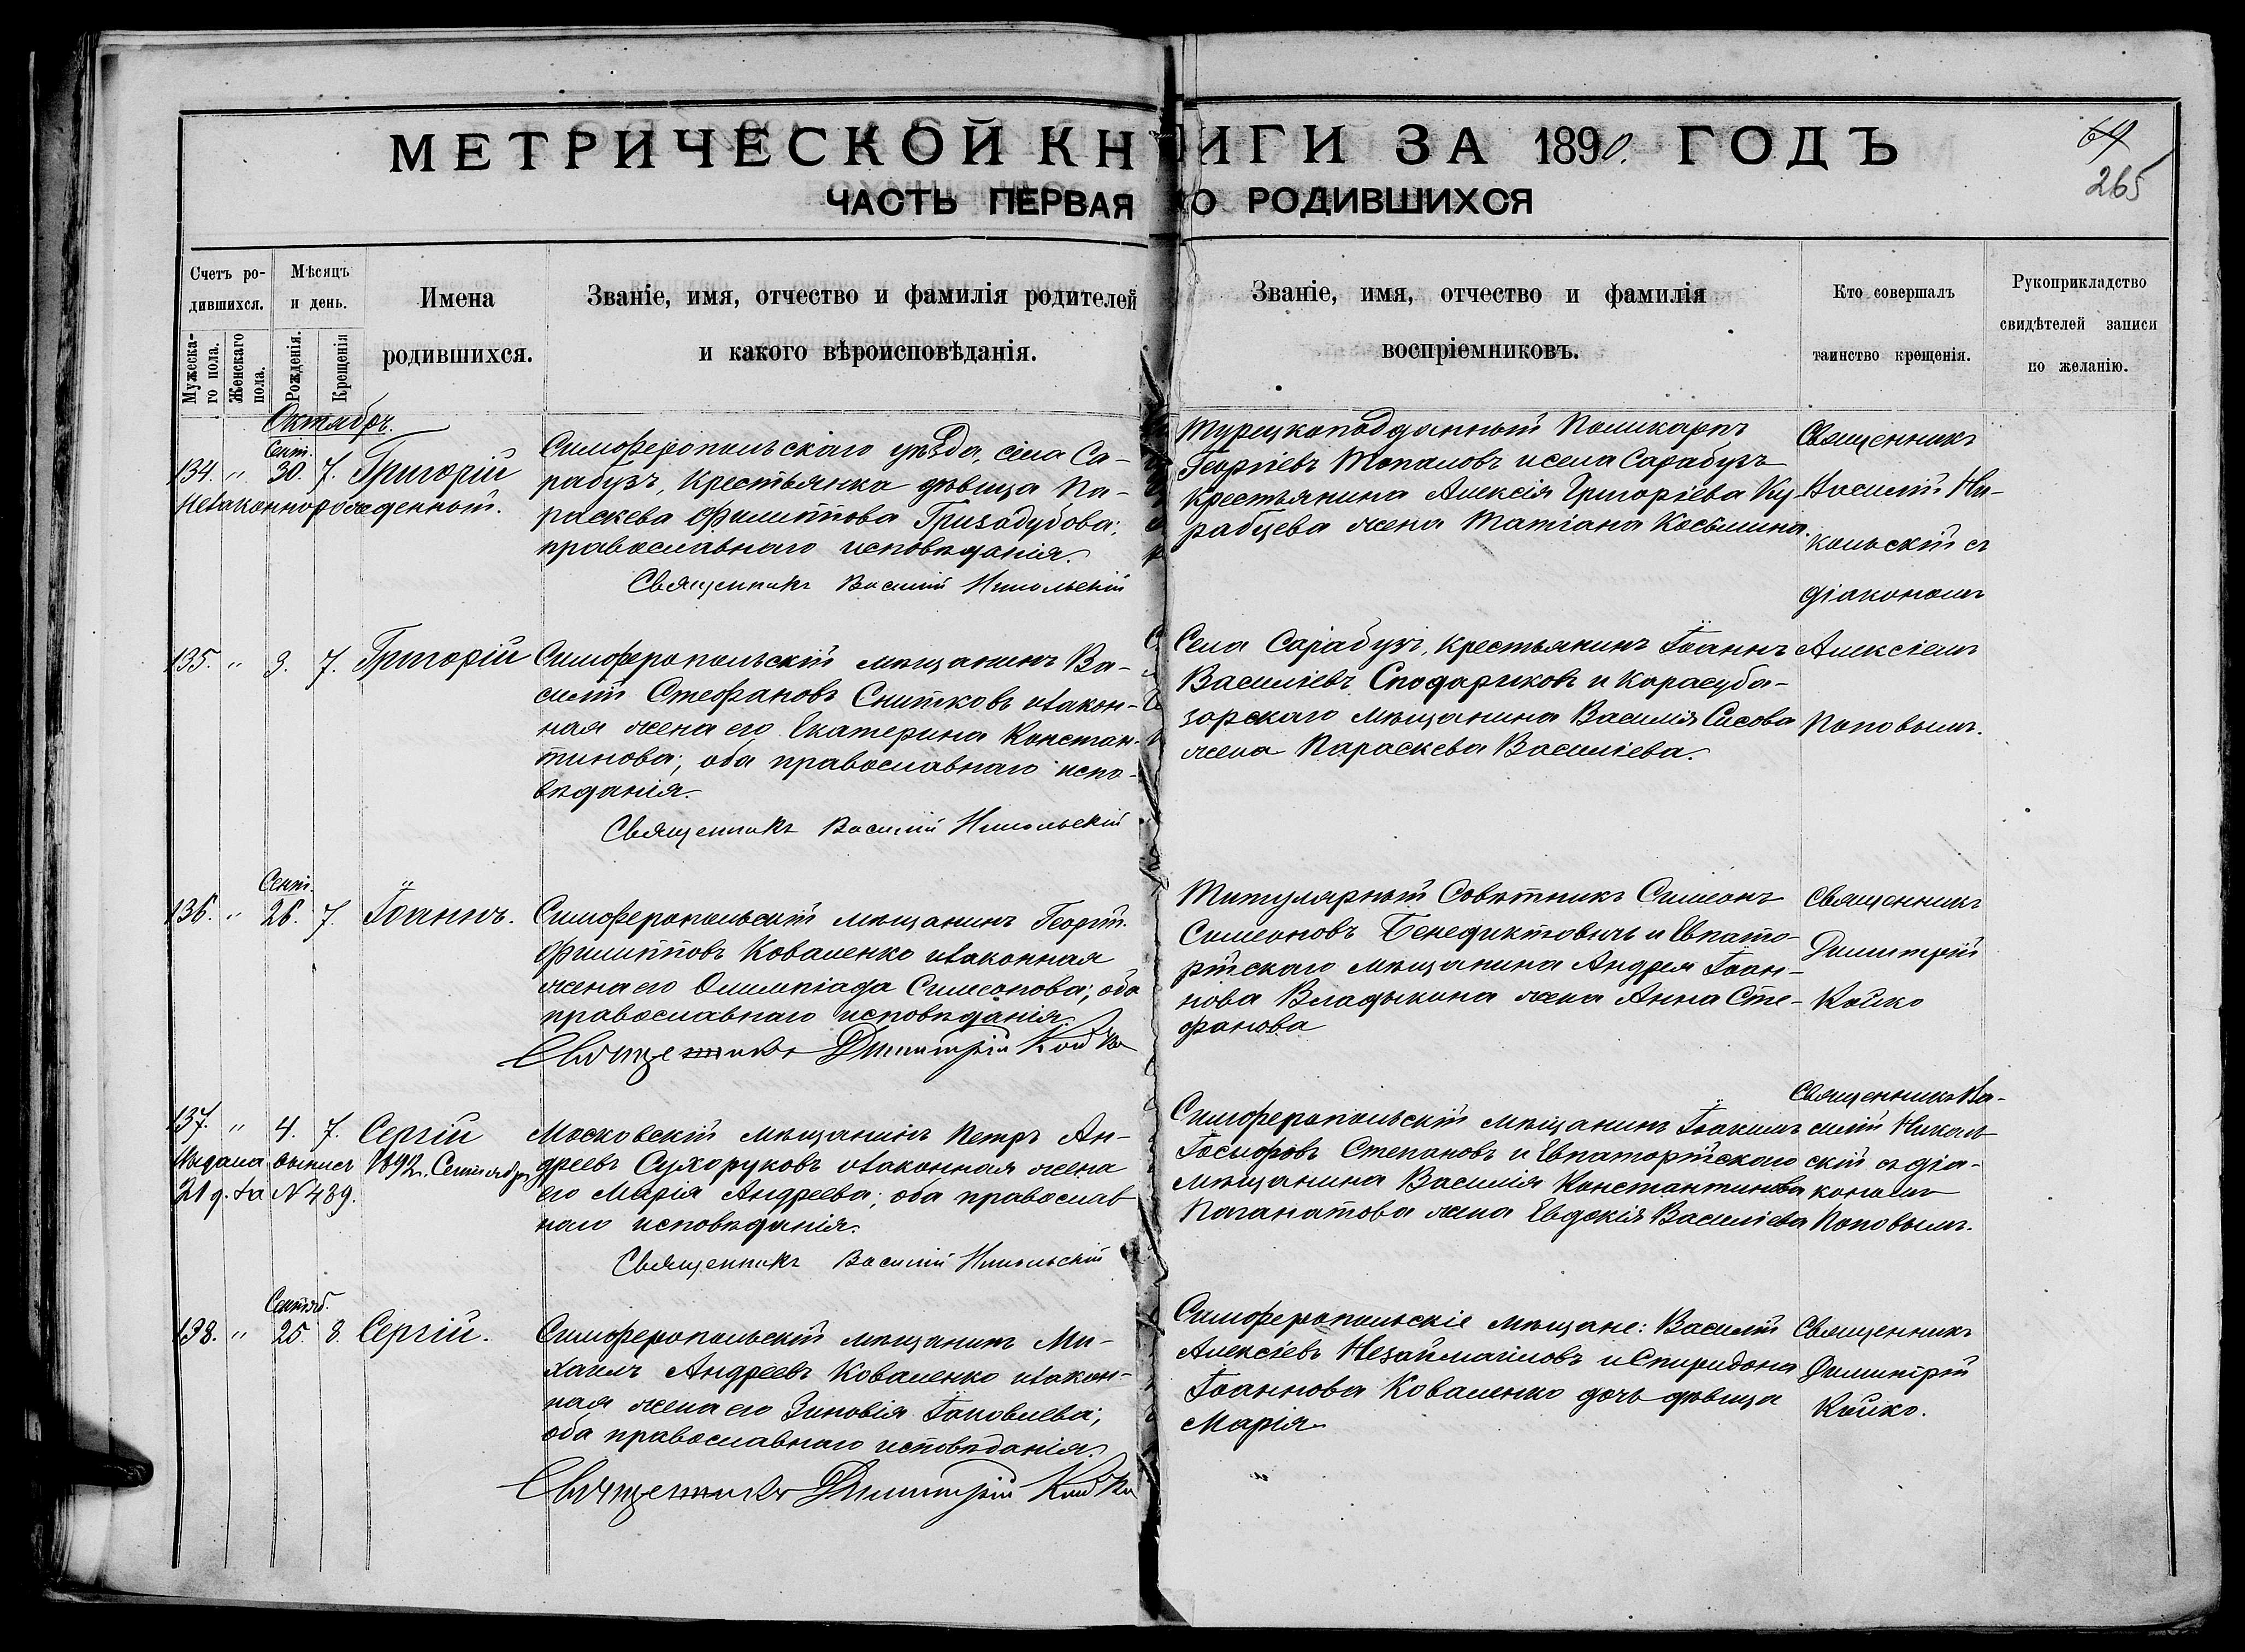 МЕТРИЧЕСКОЙ КНИГИ ЗА 1890. ГОДЪ
ЧАСТЬ ПЕРВАЯ О РОДИВШИХСЯ
64
265
Счетъ ро-
дившихся.
Мужеска-
го пола.
Женскаго
пола.
Мѣсяцъ
и день.
Рожденія.
Крещенія
Имена
родившихся.
Званіе, имя, отчество и фамилія родителей
и какого вѣроисповѣданія.
Званіе, имя, отчество и фамилія
воспріемниковъ.
Кто совершалъ
таинство крещенія.
Рукоприкладство
свидѣтелей записи
по желанію.
Октябрь.
Сент.
134. " 30. 7. Григорій
незаконнорожденный.
Симферопольскаго уѣзда, села Са-
рабузъ, крестьянка дѣвица Па-
раскева Филиппова Гризодубова;
православнаго исповѣданія.
Священникъ Василій Никольскій
Турецкоподданный Поликарпъ
Георгіевъ Топаловъ и села Сарабузъ
крестьянина Алексія Григоріева Ку-
рабцева жена Татіана Косьмина.
Священникъ
Василій Ни-
кольскій съ
діакономъ
Алексіемъ
Поповымъ.
135. " 3. 7. Григорій
Симферопольскій мѣщанинъ Ва-
силій Стефановъ Снитковъ и закон-
ная жена его Екатерина Констан-
тинова; оба православнаго испо-
вѣданія.
Священникъ Василій Никольскій
Села Сарабузъ, крестьянинъ Іоаннъ
Василіевъ Сподариковъ и Карасуба-
зарскаго мѣщанина Василія Сисова
жена Параскева Василіева.
Сент.
136. " 26. 7. Іоаннъ.
Симферопольскій мѣщанинъ Георгій
Филипповъ Коваленко и законная
жена его Олимпіада Симеонова; оба
православнаго исповѣданія.
Священникъ Димитрій Койко
Титулярный Совѣтникъ Симеонъ
Симеоновъ Бенедиктовичъ и Евпато-
рійскаго мѣщанина Андрея Іоан-
нова Владыкина жена Анна Сте-
фанова
Священникъ
Димитрій
Койко
137. " 4. 7. Сергій
Выдана выпись 1892 г. Сентября
21 д. за № 489.
Московскій мѣщанинъ Петръ Ан-
дреевъ Сухоруковъ и законная жена
его Марія Андреева; оба православ
наго исповѣданія.
Священникъ Василій Никольскій
Симферопольскій мѣщанинъ Іоакимъ
Іосифовъ Степановъ и Евпаторійскаго
мѣщанина Василія Константинова
Паганатова жена Евдокія Василіева
Священникъ Ва-
силій Николь
скій съ діа-
кономъ
Поповымъ.
Сентяб.
138. " 25. 8. Сергій.
Симферопольскій мѣщанинъ Ми-
хаилъ Андреевъ Коваленко и закон-
ная жена его Зиновія Іаковлева;
оба православнаго исповѣданія.
Священникъ Димитрій Койко
Симферопольскіе мѣщане: Василій
Алексіевъ Незаймаиловъ и Спиридона
Іоаннова Коваленко дочь дѣвица
Марія
Священникъ
Димитрій
Койко.